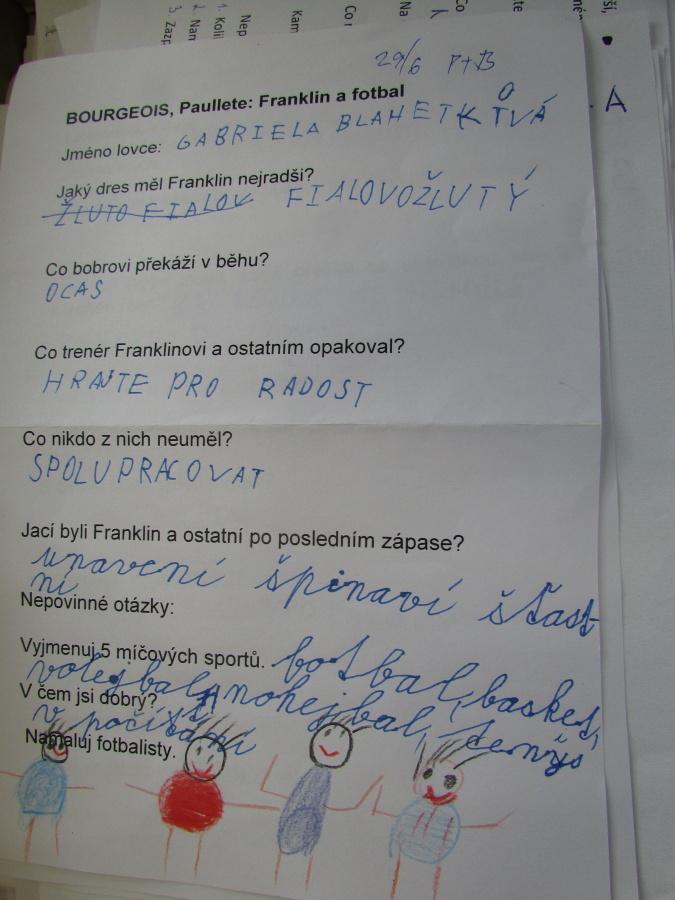 3. Zazp
2. Nan
1. Koli
Nep
Kam
Co r
Na
Co
te
ší,
A
29/6 P+B
BOURGEOIS, Paullete: Franklin a fotbal
Jméno lovce: GABRIELA BLAHETKOVÁ
Jaký dres měl Franklin nejradši?
ŽLUTO FIALOV FIALOVOŽLUTÝ
Co bobrovi překáží v běhu?
OCAS
Co trenér Franklinovi a ostatním opakoval?
HRAJTE PRO RADOST
Co nikdo z nich neuměl?
SPOLUPRACOVAT
Jací byli Franklin a ostatní po posledním zápase?
unavení špinaví šťast
ní
Nepovinné otázky:
Vyjmenuj 5 míčových sportů. fotbal, basket,
volejbal, nohejbal, tenys
V čem jsi dobrý?
v počítání
Namaluj fotbalisty.